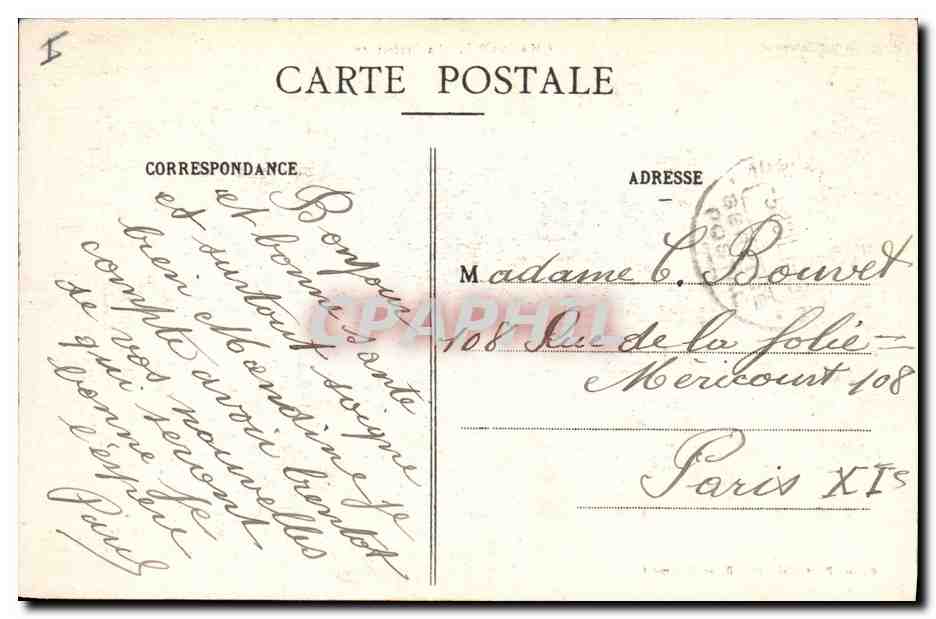 CARTE POSTALE
CORRESPONDANCE
ADRESSE
Bonjour
et bonne santé
et surtout soigne
bien Mansime je
compte avoir bientot
de vos nouvelles
qui seront
bonne je
l'espère
Paul
Madame C. Bouvet
108 Rue de la folie=
Méricourt 108
Paris XIe
CPAPHIL
I